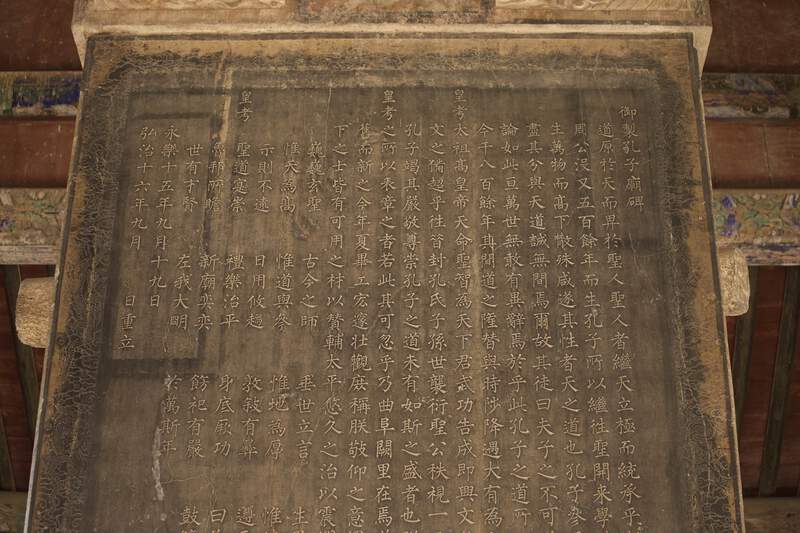 御製孔子廟碑
道原於天而畀於聖人聖人者繼天立極而統承乎
周公沒又五百餘年而生孔子所以繼往聖開來學
生萬物而高下散殊咸遂其性者天之道也孔子參
盡其分與天道誠無間焉爾故其徒曰夫子之不可
論如此亘萬世無敢有異辭焉於乎此孔子之道所
今千八百餘年其間道之隆替與時陟降遇大有為
皇考太祖高皇帝天命聖智為天下君武功告成即興文
文之備超乎往昔封孔氏子孫世襲衍聖公秩視一
孔子竭其嚴敬尊崇孔子之道未有如斯之盛者也
皇考之所以表章之者若此其可忽乎乃曲阜闕里在焉
舊而新之今年夏畢工宏邃壯觀庶稱朕敬仰之意
下之士皆有可用之材以贊輔太平悠久之治以震
巍巍玄聖 古今之師 垂世立言 生
惟天為高 惟道與參 惟地為厚 惟
示則不遠 日用攸趨 敦敘有彝 遵
皇考聖道寔崇 禮樂治平 身底厥功 曰
魯邦所瞻 新廟奕奕 飭祀有嚴 鼓
世有才賢 左我大明 於萬斯年
永樂十五年九月十九日
弘治十六年九月 日重立